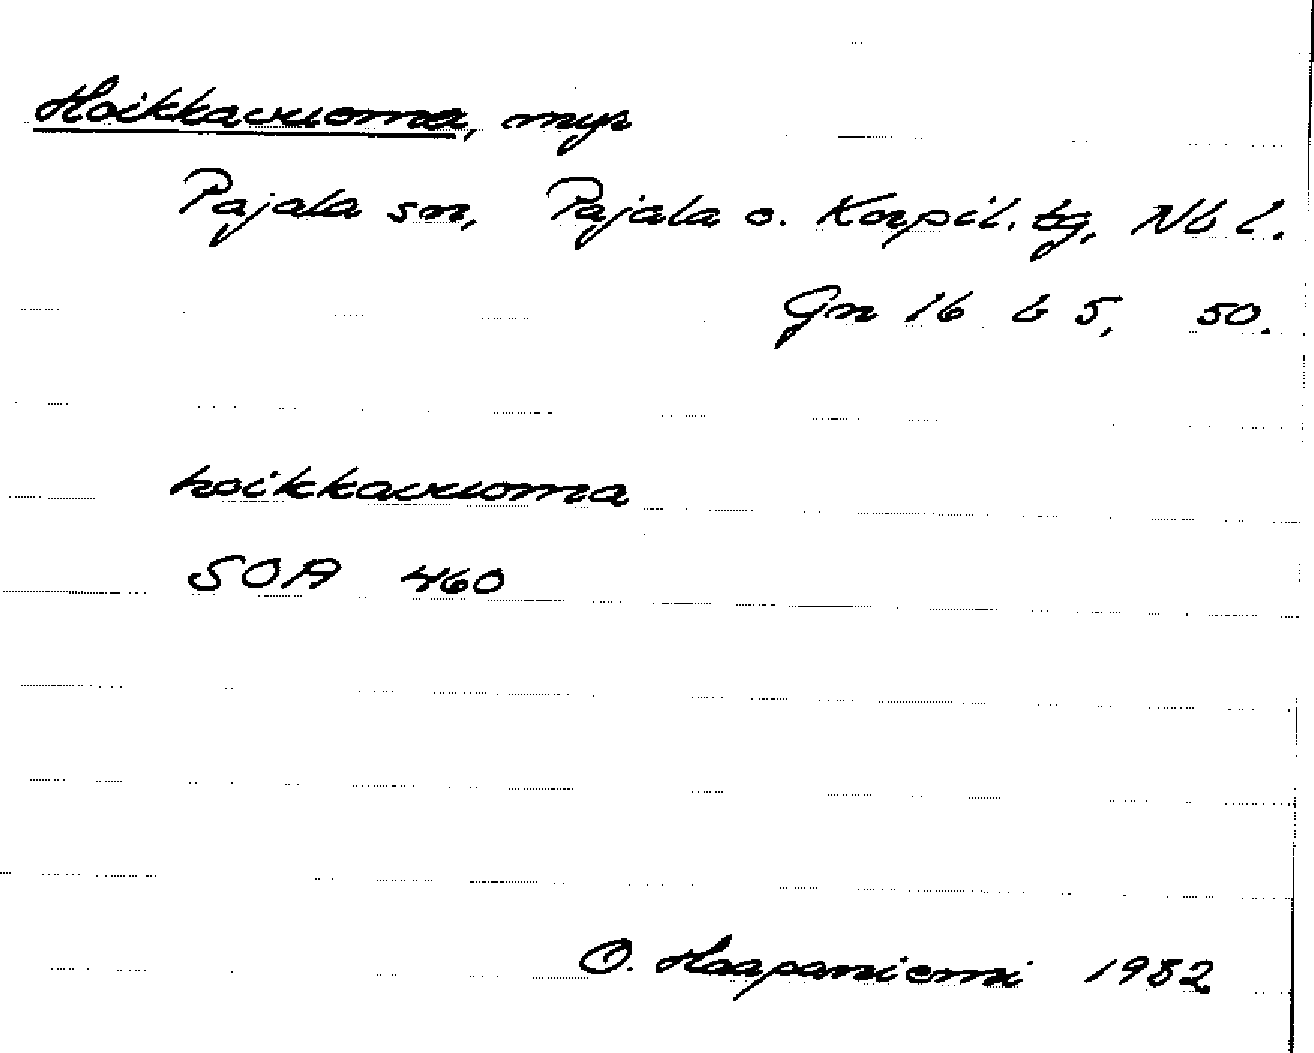 Hoikkavuoma, myr
Pajala sn, Pajala o. Korpil. tg, Nb l.
Gn 16 b 5, 50.
hoikkavuoma
SOA 460
O. Haapaniemi 1982